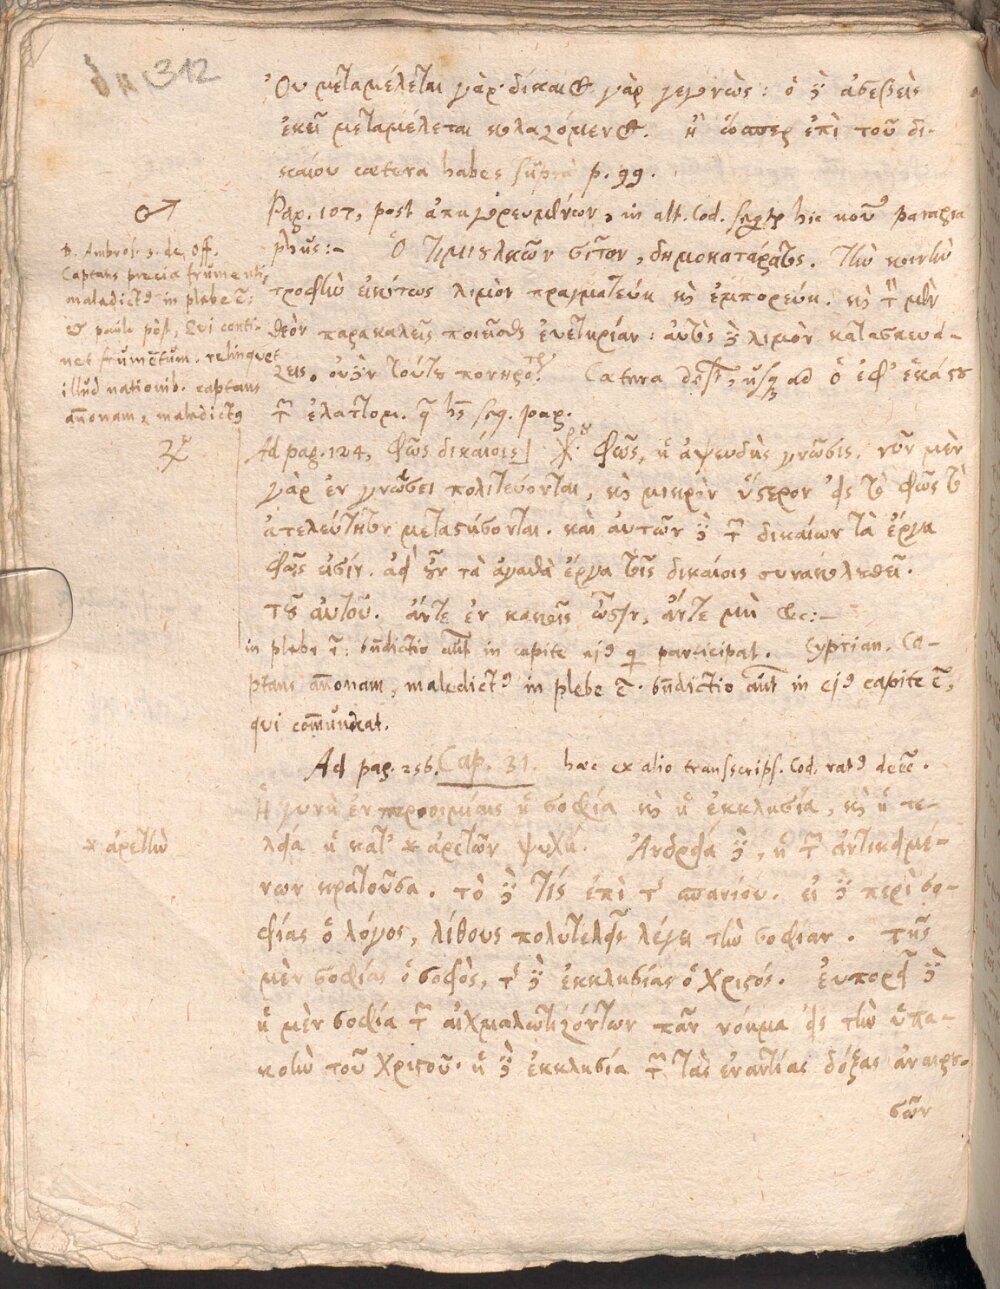 312
Οὐ μεταμέλεται γὰρ δίκαιος γὰρ γεγονώς: ὁ δὲ ἀσεβεῖς
ἐκεῖ μεταμέλεται κολαζόμενος. ἢ ὥσπερ ἐπὶ τοῦ δι-
καίου cætera habes suprà p. 99.
Pag. 107, post in alt. Cod. seqtr hic nouꝰ paragra
phus:- Ὁ τιμιουλκῶν σῖτον, δημοκατάρατος. τὴν κοινὴν
τροφὴν εἰκότως λιμὸν πραγματεύῃ καὶ ἐμπορεύῃ. καὶ τὸν μὲν
θεὸν παρακαλεῖς ποιεῖσθαι εὐετηρίαν: αὐτὸς δὲ λιμὸν κατασκευά-
ζεις. οὐδὲν τούτου πονηρότερ. Cætera desт, usq ad ὁ ἐφ' ἑκάστῳ
τῶν ἐλαττον. q hs seq. pag.
D. Ambros. 3. de, Off.
Captans precia frumenti,
maledictꝰ in plebe e:
et paulo pòst, Qui conti-
net frumētum. relinquet
illud nationib. captans
añonam, maledictꝰ
Ad pag. 124, Φῶς δικαίοις] Φῶς, ἡ ἀψευδὴς γνῶσις. νῦν μὲν
γὰρ ἐν γνώσει πολιτεύονται, καὶ μικρὸν ὕστερον εἰς τὸ φῶς τὸ
ἀτελεύτητον μεταστήσονται. καὶ αὐτῶν δὲ τῶν δικαίων τὰ ἔργα
φῶς εἰσίν. ἀφ' ὧν τὰ ἀγαθὰ ἔργα τοῖς δικαίοις
τοῦ αὐτοῦ. ἄντε ἐν καιροῖς ὦσιν, ἄντε μὴ &c:-
in plebe ē: bn̄dictio aūt in capite ejꝰ q participat. Cyprian. Ca-
ptans añonam, maledictꝰ in plebe ē. bn̄dictio aūt in ejꝰ capite ē,
qui com̄unicat.
Ad pag. 256. Cap. 31. hæc ex alio transscrips. Cod.
Ἡ γυνὴ ἐν παροιμίαις ἡ σοφία καὶ ἡ ἐκκλησία, καὶ ἡ τε-
λεία ἡ κατ' * ἀρετῶν ψυχή. Ἀνδρεία δὲ, ἡ τῶν ἀντικειμέ-
* ἀρετὴν
νων κρατοῦσα. τὸ δὲ τίς ἐπὶ τοῦ σπανίου. εἰ δὲ περὶ σο-
φίας ὁ λόγος, λίθους πολυτελεῖς λέγει τὴν σοφίαν. τῆς
μὲν σοφίας ὁ σοφὸς, τῆς δὲ ἐκκλησίας ὁ Χριστός. εὐπορεῖ δὲ
ἡ μὲν σοφία τῶν αἰχμαλωτιζόντων πᾶν νόημα εἰς τὴν ὑπα-
κοὴν τοῦ Χριστοῦ. ἡ δὲ ἐκκλησία τῶν τὰς ἐναντίας δόξας ἀναιρου-
σῶν